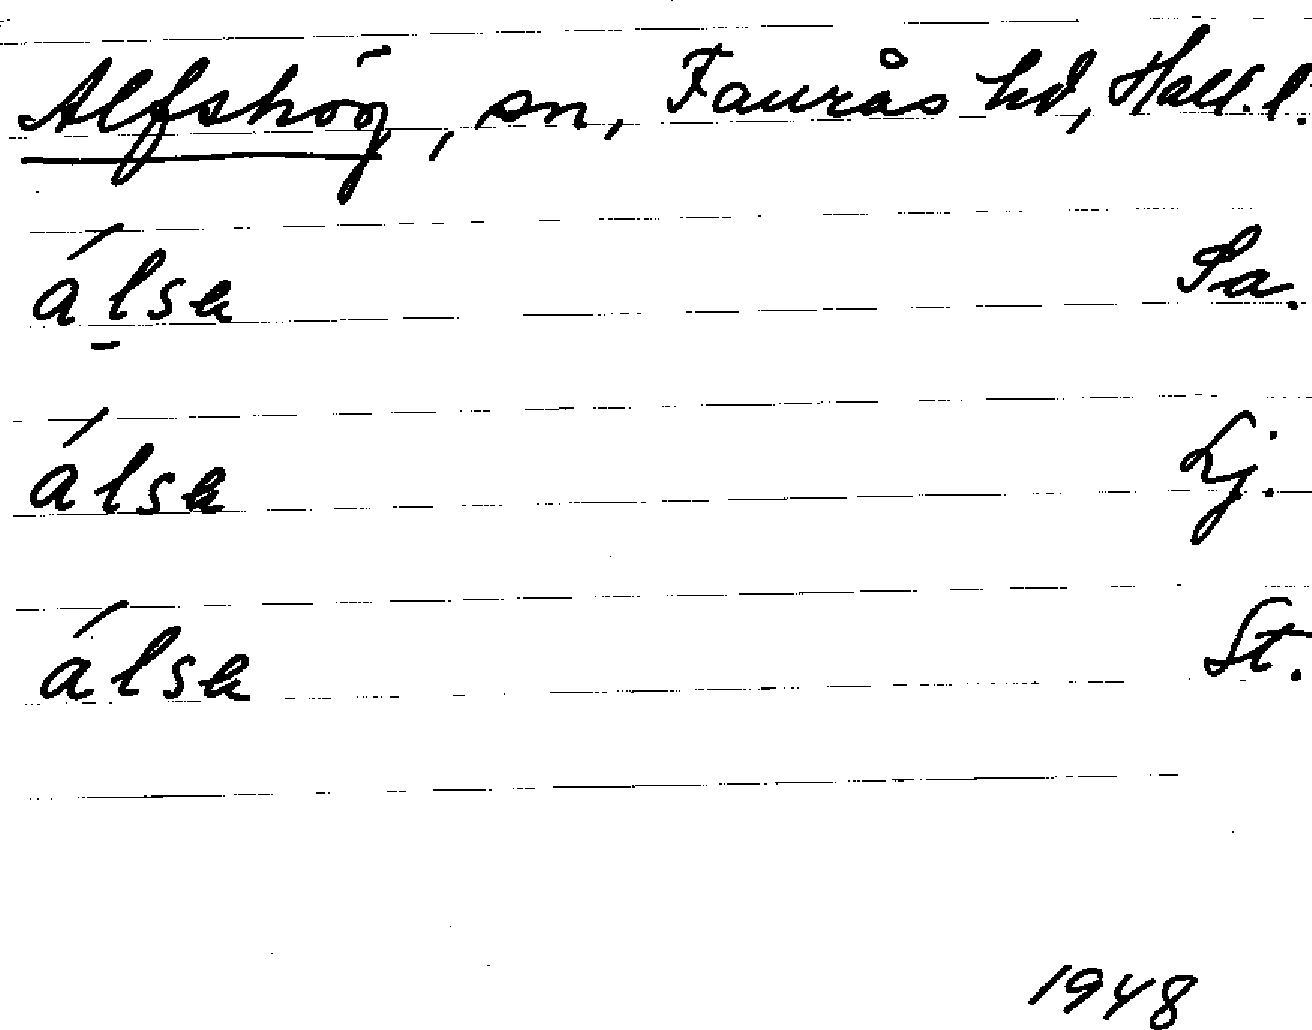 Alfshög, sn, Faurås hd, Hall. l.
álsa Sa.
álsa Lj.
álsa St.
1948